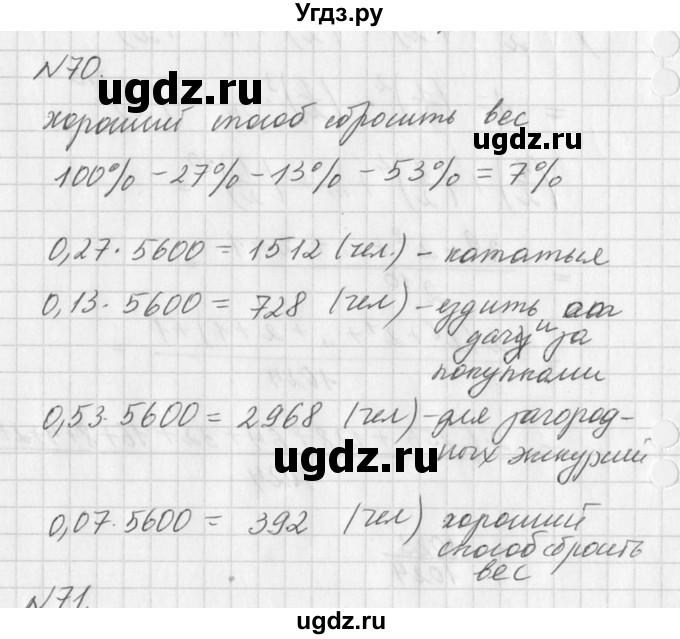 Угдз.ру
N70.
ugdz.ru
ugdz.ru
хороший способ сбросить вес
100% - 27% - 13% - 53% = 7%
0,27 · 5600 = 1512 (чел) - кататься
ugdz.ru
0,13 · 5600 = 728 (чел) - ездить
дачу и за
покупками
0,53 · 5600 = 2968 (чел) - для загород-
ugdz.ru
ных экскурсий
0,07 · 5600 = 392 (чел) хороший
способ сбросить
ugdz.ru
вес
N71.
ugdz.ru